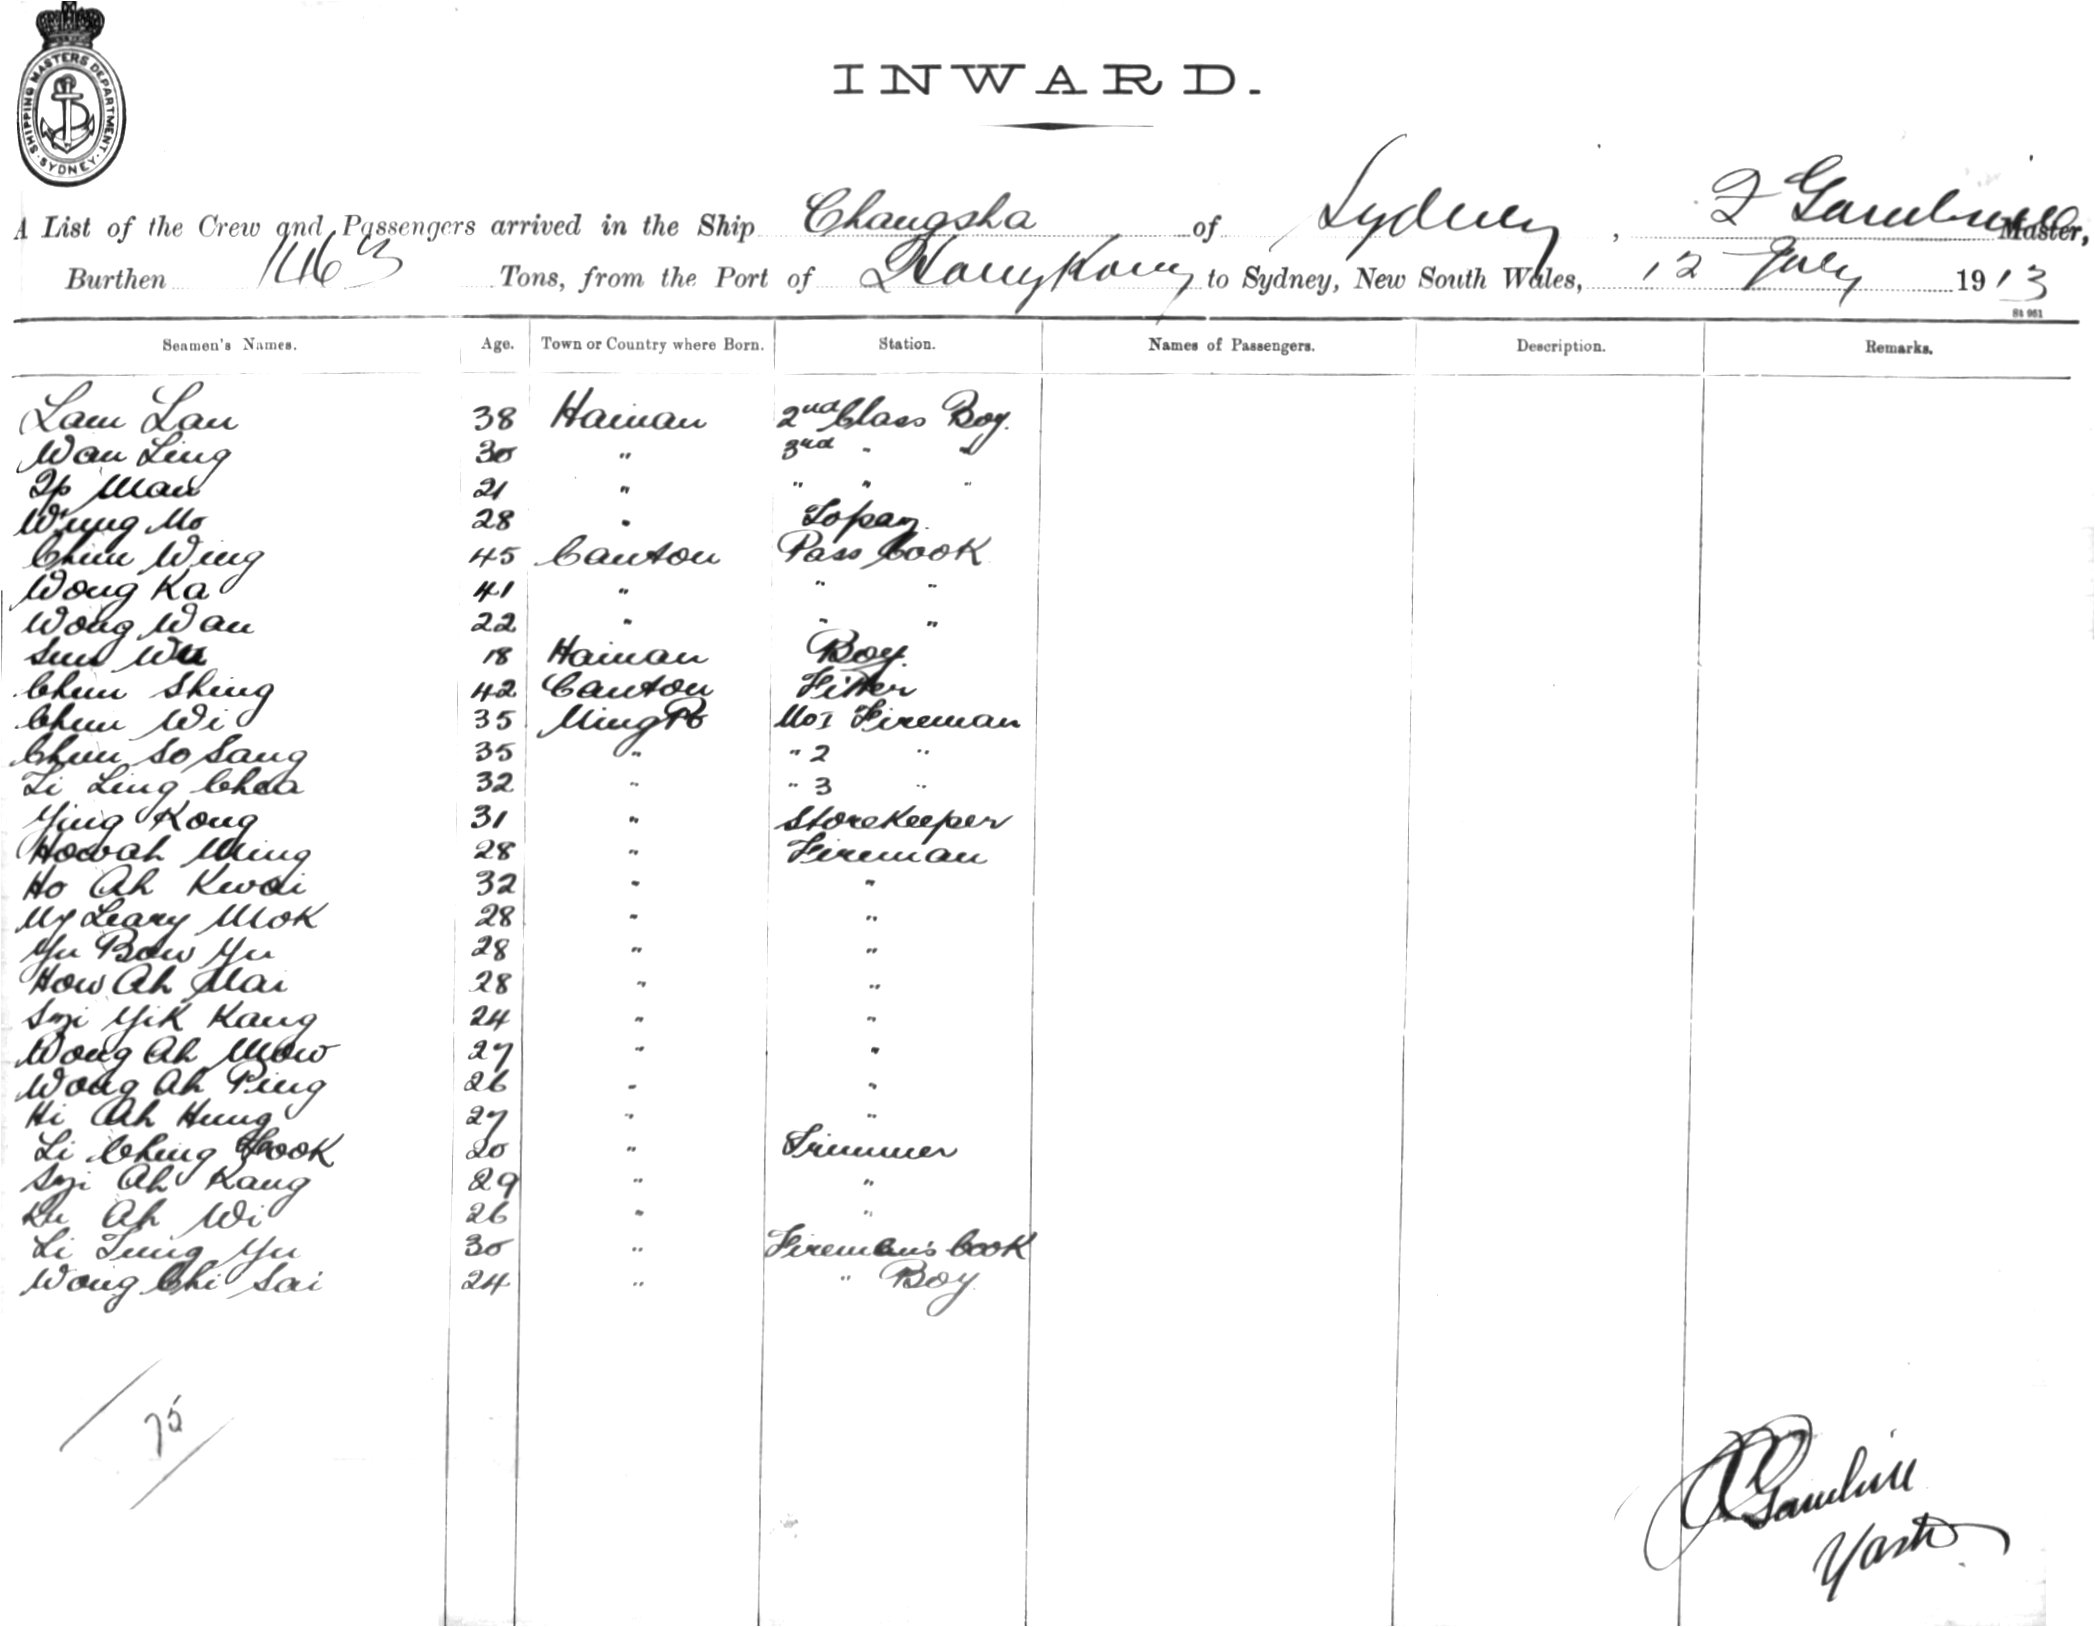 SHIPPING MASTERS DEPARTMENT. SYDNEY.
INWARD.
A List of the Crew and Passengers arrived in the Ship Changsha of Sydney, Master,
Burthen 1463 Tons, from the Port of Hong Kong to Sydney, New South Wales, 12 July 1913
St 961
Seamen's Names. Age. Town or Country where Born. Station. Names of Passengers. Description. Remarks.
Lam Lan 38 Hainan 2nd Class Boy.
Wan Ling 30 " 3rd " "
Ip Man 21 " " " "
Wung Mo 28 "
Chun Wing 45 Canton Pass Cook
Wong Ka 41 " " "
Wong Wan 22 " " "
Sun Wu 18 Hainan Boy.
Chun Shing 42 Canton Fitter
Chun Wi 35 Ning Po No 1 Fireman
Chun So Sang 35 " " 2 "
Li Ling Chea 32 " " 3 "
Ying Kong 31 " Storekeeper
Howah Ming 28 " Fireman
Ho Ah Kwai 32 " "
Ng Leary Mok 28 " "
Yu Bow Yu 28 " "
How Ah Mai 28 " "
Szi Yik Kang 24 " "
Wong Ah Mow 27 " "
Wong Ah Ping 26 " "
Hi Ah Hung 27 " "
Li Ching Hook 20 " Trimmer
Szi Ah Kang 29 " "
Lu Ah Wi 26 " "
Li Tung Yu 30 " Fireman's Cook
Wong Chi Sai 24 " " Boy.
75